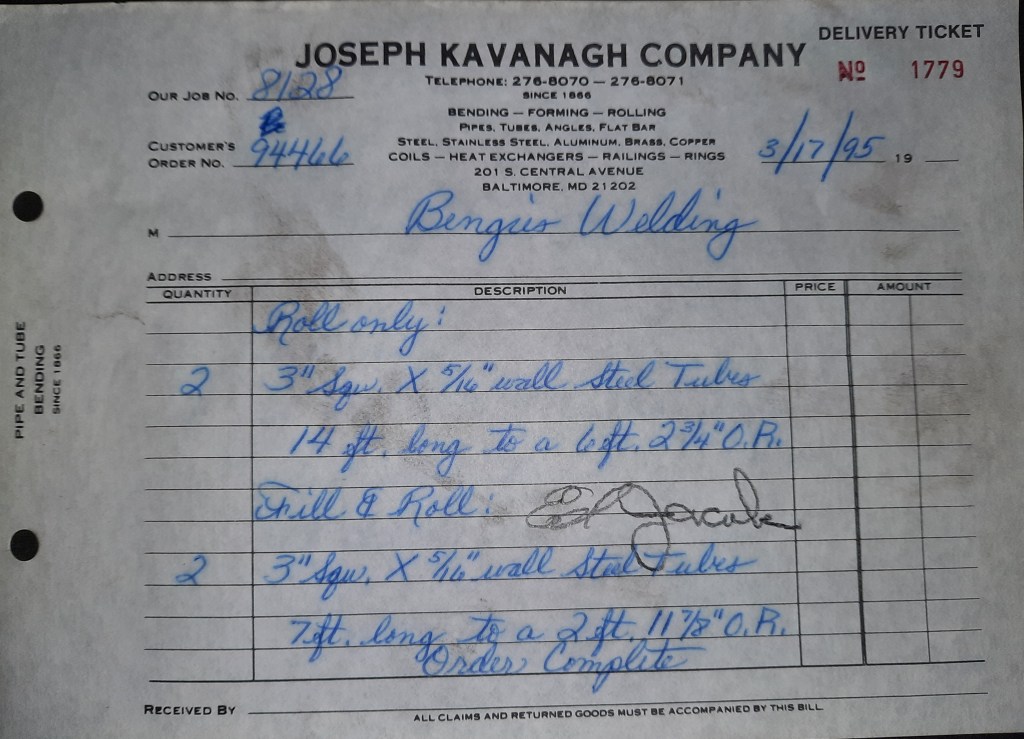 DELIVERY TICKET
JOSEPH KAVANAGH COMPANY
Nº 1779
TELEPHONE: 276-8070 — 276-8071
SINCE 1866
OUR JOB NO. 8128
BENDING — FORMING — ROLLING
PIPES, TUBES, ANGLES, FLAT BAR
CUSTOMER'S
ORDER NO. 94466
STEEL, STAINLESS STEEL, ALUMINUM, BRASS, COPPER
COILS — HEAT EXCHANGERS — RAILINGS — RINGS
3/17/95 19
201 S. CENTRAL AVENUE
BALTIMORE, MD 21202
M Bengies Welding
ADDRESS
QUANTITY DESCRIPTION PRICE AMOUNT
Roll only:
2 3" Squ. X 5/16" wall Steel Tubes
14 ft. long to a 6 ft. 2 3/4" O.R.
Fill & Roll:
2 3" Squ. X 5/16" wall Steel Tubes
7 ft. long to a 2 ft. 11 7/8" O.R.
Order Complete
RECEIVED BY
ALL CLAIMS AND RETURNED GOODS MUST BE ACCOMPANIED BY THIS BILL
PIPE AND TUBE
BENDING
SINCE 1866